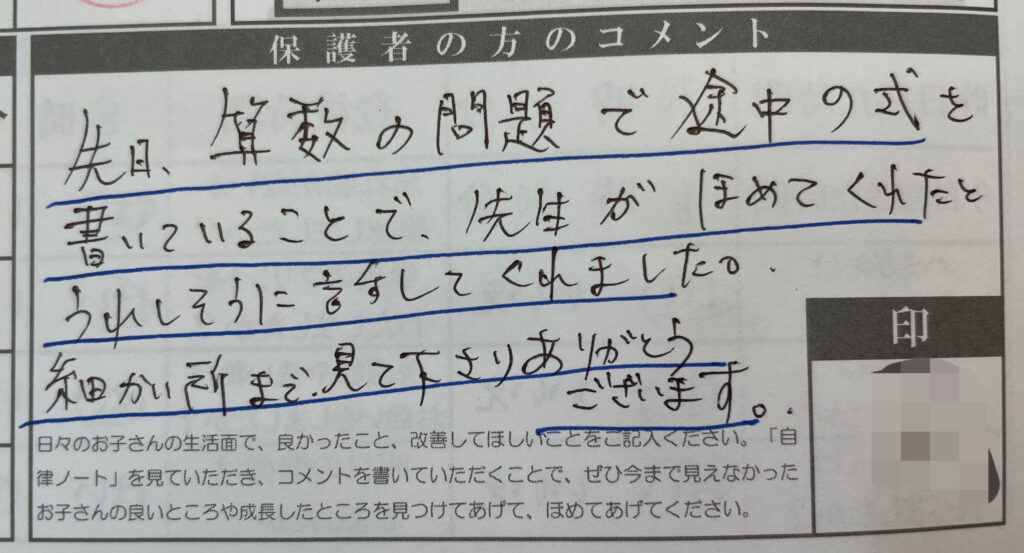 保護者の方のコメント
先日、算数の問題で途中の式を
書いていることで、先生がほめてくれたと
うれしそうに話してくれました。
細かい所まで見て下さりありがとう
ございます。
印
日々のお子さんの生活面で、良かったこと、改善してほしいことをご記入ください。「自
律ノート」を見ていただき、コメントを書いていただくことで、ぜひ今まで見えなかった
お子さんの良いところや成長したところを見つけてあげて、ほめてあげてください。